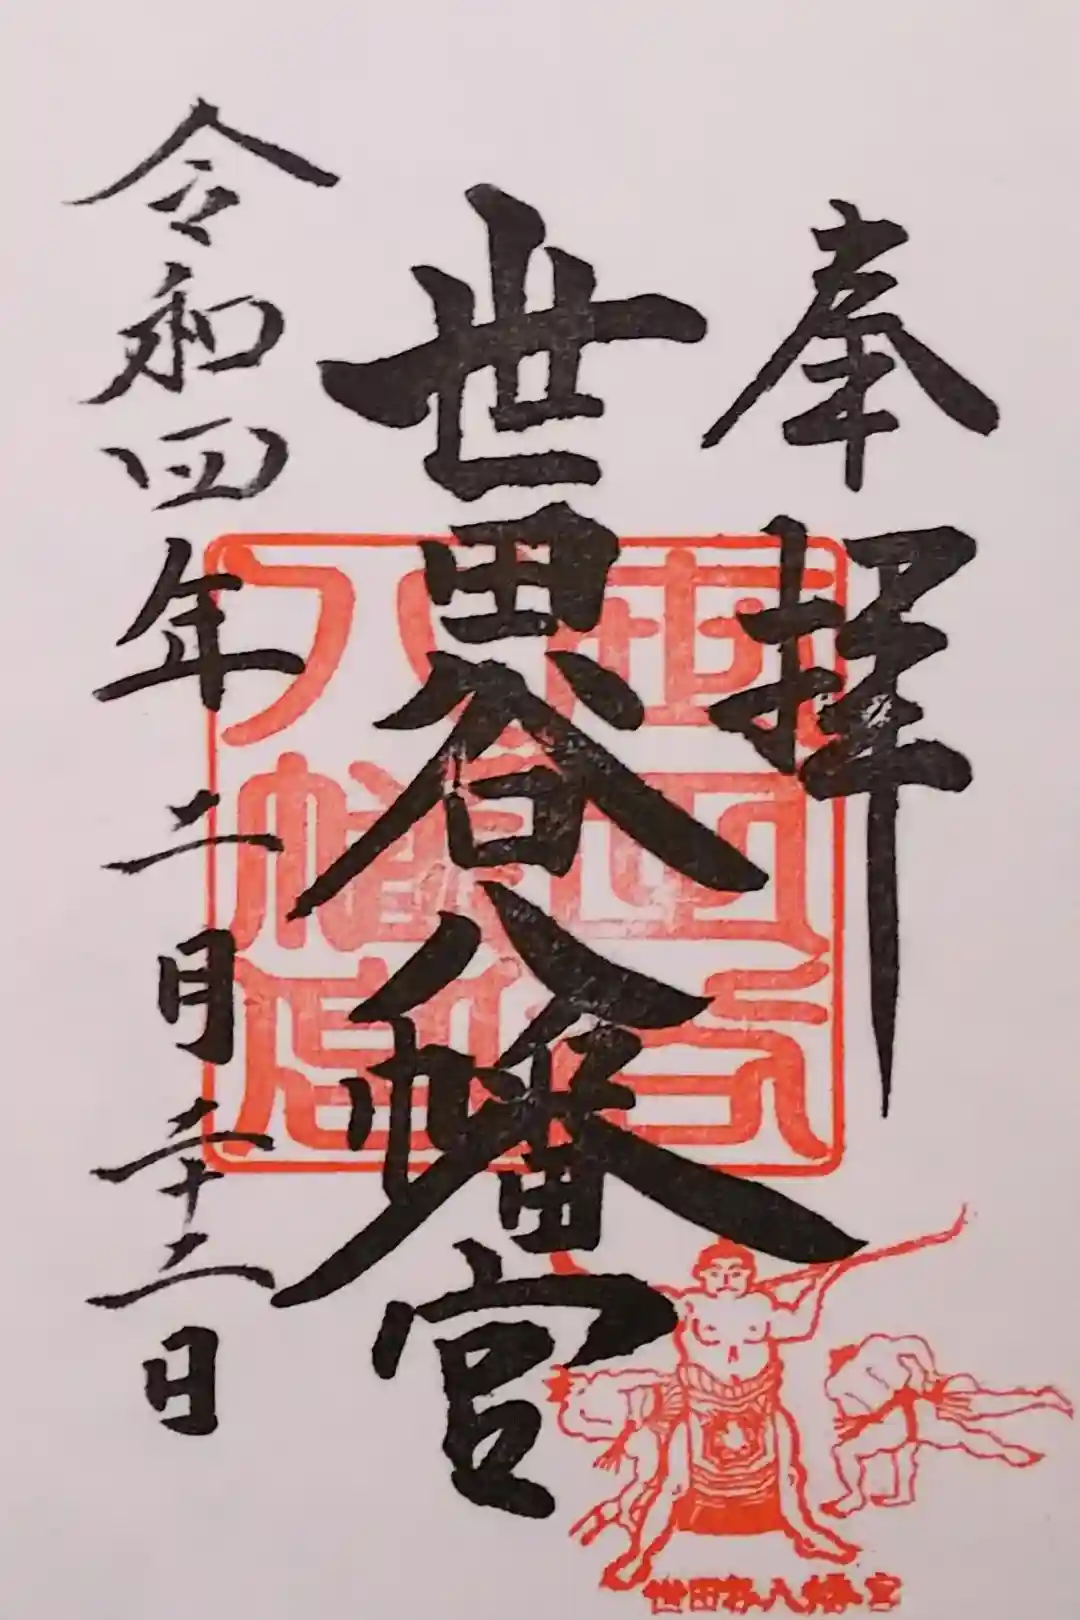 奉拝
世田谷八幡宮
令和四年二月二十二日
世田谷
八幡宮
世田谷八幡宮